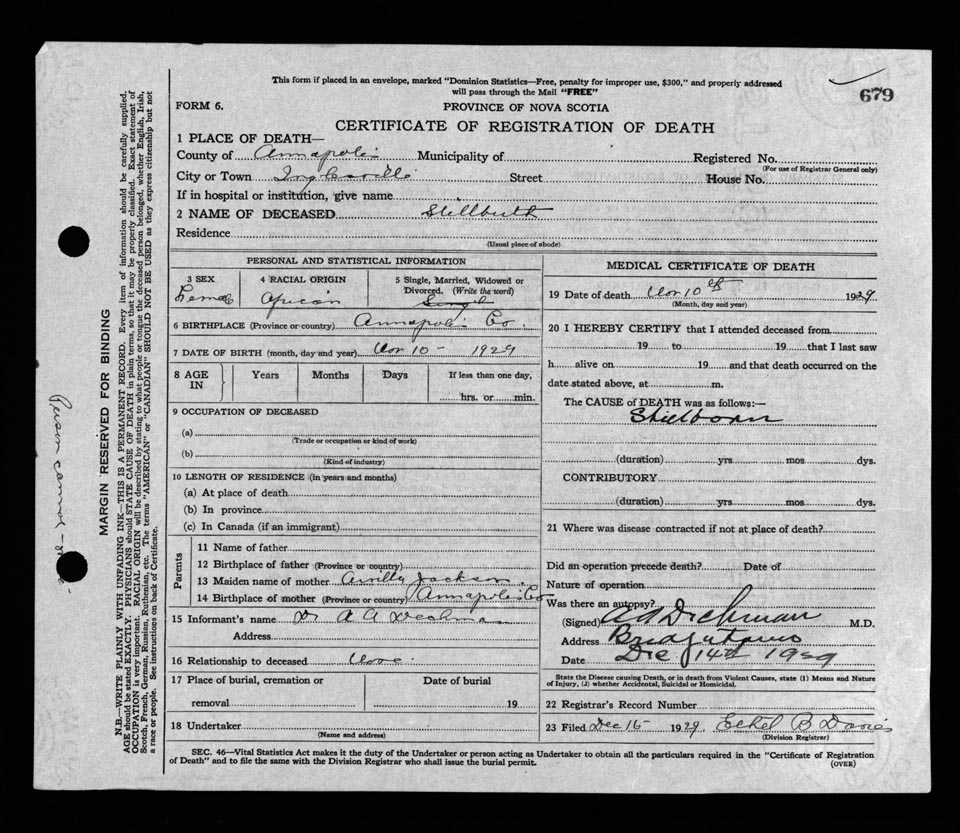 This form if placed in an envelope, marked "Dominion Statistics—Free, penalty for improper use, $300," and properly addressed
will pass through the Mail "FREE"
679
FORM 6.
PROVINCE OF NOVA SCOTIA
CERTIFICATE OF REGISTRATION OF DEATH
1 PLACE OF DEATH—
County of Annapolis Municipality of Registered No.
(For use of Registrar General only)
City or Town Inglisville Street House No.
If in hospital or institution, give name
2 NAME OF DECEASED Stillbirth
Residence
(Usual place of abode)
PERSONAL AND STATISTICAL INFORMATION
3 SEX Female
4 RACIAL ORIGIN African
5 Single, Married, Widowed or
Divorced. (Write the word)
Single
6 BIRTHPLACE (Province or country) Annapolis Co.
7 DATE OF BIRTH (month, day and year) Nov 10 - 1929
8 AGE IN Years Months Days If less than one day,
hrs. or min.
9 OCCUPATION OF DECEASED
(a)
(Trade or occupation or kind of work)
(b)
(Kind of industry)
10 LENGTH OF RESIDENCE (in years and months)
(a) At place of death
(b) In province
(c) In Canada (if an immigrant)
Parents
11 Name of father
12 Birthplace of father (Province or country)
13 Maiden name of mother Jackson
14 Birthplace of mother (Province or country) Annapolis Co
15 Informant's name Dr A A Dechman
Address
16 Relationship to deceased None
17 Place of burial, cremation or Date of burial
removal 19
18 Undertaker
(Name and address)
MEDICAL CERTIFICATE OF DEATH
19 Date of death Nov 10th 1929
(Month, day and year)
20 I HEREBY CERTIFY that I attended deceased from
19 to 19 that I last saw
h alive on 19 and that death occurred on the
date stated above, at m.
The CAUSE of DEATH was as follows:—
Stillborn
(duration) yrs mos dys.
CONTRIBUTORY
(duration) yrs mos dys.
21 Where was disease contracted if not at place of death?
Did an operation precede death? Date of
Nature of operation
Was there an autopsy?
(Signed) A A Dechman M.D.
Address Bridgetown
Date Dec 14th 1929
State the Disease causing Death, or in death from Violent Causes, state (1) Means and Nature
of Injury, (2) whether Accidental, Suicidal or Homicidal.
22 Registrar's Record Number
23 Filed Dec 16 1929 Ethel B Davis
(Division Registrar)
SEC. 46—Vital Statistics Act makes it the duty of the Undertaker or person acting as Undertaker to obtain all the particulars required in the "Certificate of Registration
of Death" and to file the same with the Division Registrar who shall issue the burial permit.
(OVER)
MARGIN RESERVED FOR BINDING
N.B.—WRITE PLAINLY WITH UNFADING INK—THIS IS A PERMANENT RECORD. Every item of information should be carefully supplied.
AGE should be stated EXACTLY. PHYSICIANS should STATE CAUSE OF DEATH in plain terms, so that it may be properly classified. Exact statement of
OCCUPATION is very important. RACIAL ORIGIN will be described by stating to what people or tongue the deceased person belonged, whether English, Irish,
Scotch, French, German, Russian, Ruthenian, etc. The terms "AMERICAN" or "CANADIAN" SHOULD NOT BE USED as they express citizenship but not
a race or people. See instructions on back of Certificate.